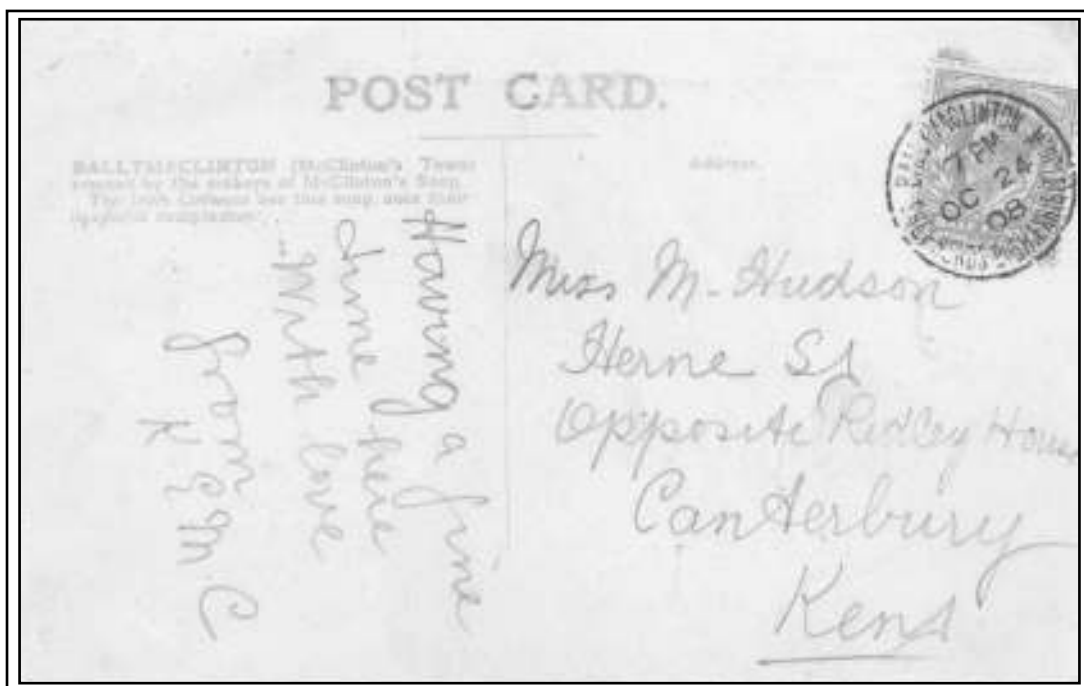 POST CARD.
BALLYMACLINTON (McClinton's Town)
erected by the makers of McClinton's Soap.
The Irish Colleens use this soap, note their
complexions.
Address.
BALLYMACLINTON
7 PM
OC 24
08
Having a fine
time here
With love
from
K & M. C
Miss M. Hudson
Herne St
Opposite Ridley House
Canterbury
Kent